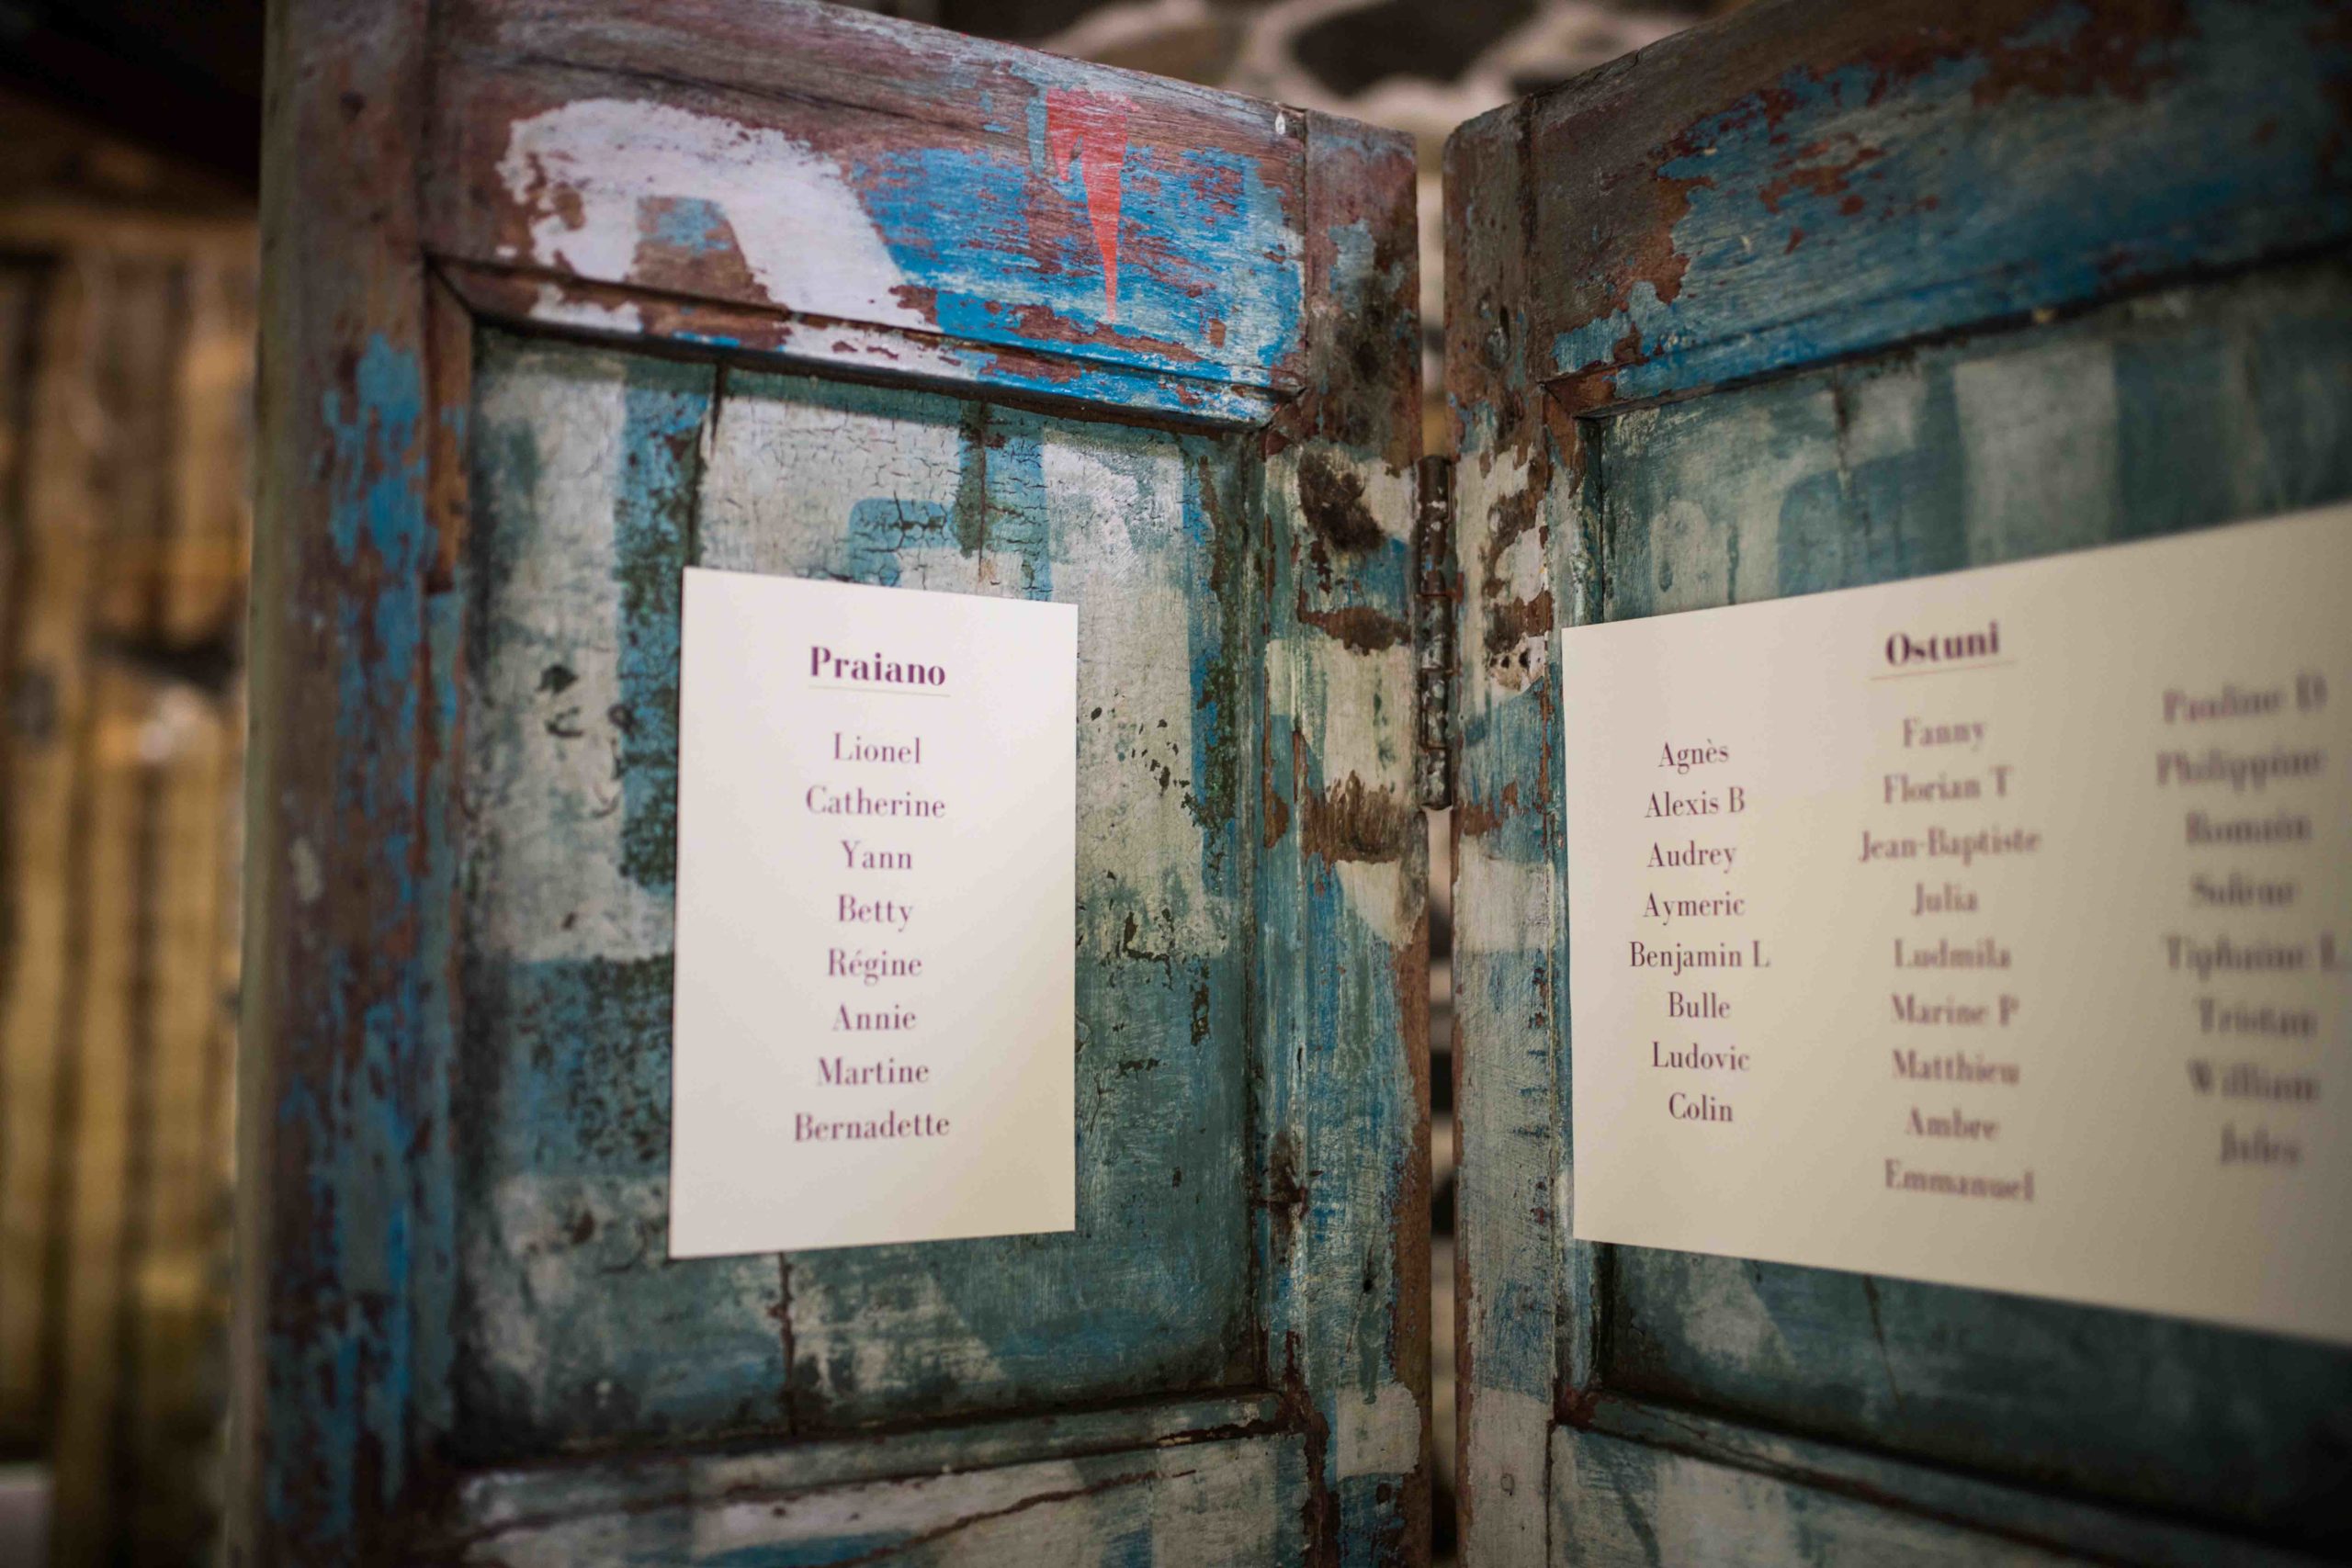 Praiano
Lionel
Catherine
Yann
Betty
Régine
Annie
Martine
Bernadette
Ostuni
Agnès
Alexis B
Audrey
Aymeric
Benjamin L
Bulle
Ludovic
Colin
Fanny
Florian T
Jean-Baptiste
Julia
Ludmila
Marine P
Matthieu
Ambre
Emmanuel
Pauline D
Philippine
Romain
Solène
Tiphaine L
Tristan
William
Jules